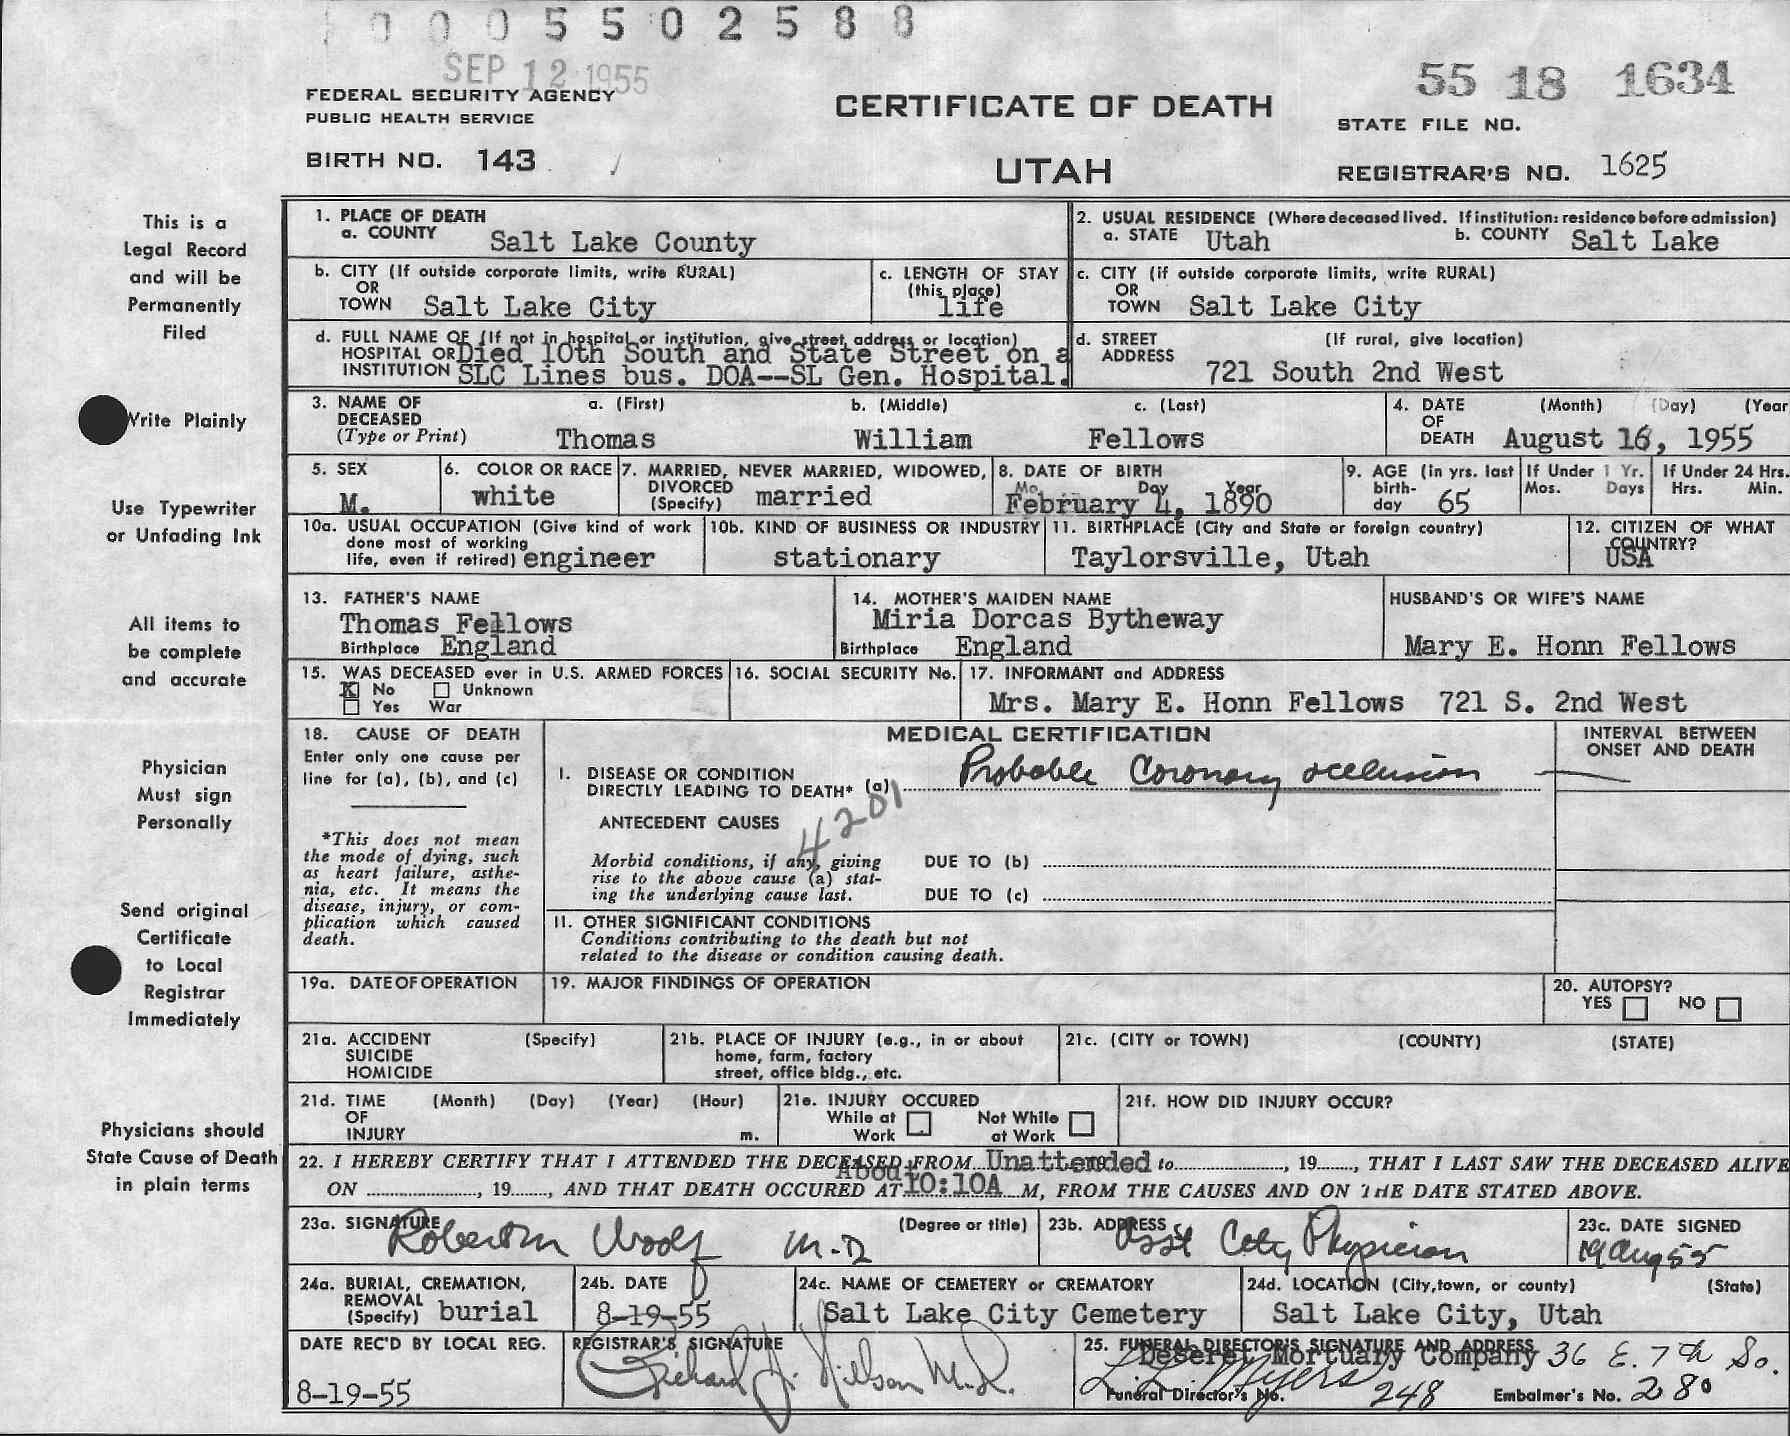 0005502588
SEP 12 1955
FEDERAL SECURITY AGENCY
PUBLIC HEALTH SERVICE
BIRTH NO. 143
CERTIFICATE OF DEATH
UTAH
55 18 1634
STATE FILE NO.
REGISTRAR'S NO. 1625
This is a
Legal Record
and will be
Permanently
Filed
Write Plainly
Use Typewriter
or Unfading Ink
All items to
be complete
and accurate
Physician
Must sign
Personally
Send original
Certificate
to Local
Registrar
Immediately
Physicians should
State Cause of Death
in plain terms
1. PLACE OF DEATH
a. COUNTY Salt Lake County
2. USUAL RESIDENCE (Where deceased lived. If institution: residence before admission)
a. STATE Utah b. COUNTY Salt Lake
b. CITY (If outside corporate limits, write RURAL)
OR
TOWN Salt Lake City
c. LENGTH OF STAY
(this place)
life
c. CITY (if outside corporate limits, write RURAL)
OR
TOWN Salt Lake City
d. FULL NAME OF (If not in hospital or institution, give street address or location)
HOSPITAL OR Died 10th South and State Street on a
INSTITUTION SLC Lines bus. DOA--SL Gen. Hospital.
d. STREET (If rural, give location)
ADDRESS
721 South 2nd West
3. NAME OF a. (First) b. (Middle) c. (Last)
DECEASED
(Type or Print) Thomas William Fellows
4. DATE (Month) (Day) (Year
OF
DEATH August 16, 1955
5. SEX
M.
6. COLOR OR RACE
white
7. MARRIED, NEVER MARRIED, WIDOWED,
DIVORCED
(Specify) married
8. DATE OF BIRTH
Mo. Day Year
February 4, 1890
9. AGE (in yrs. last
birth-
day 65
If Under 1 Yr.
Mos. Days
If Under 24 Hrs.
Hrs. Min.
10a. USUAL OCCUPATION (Give kind of work
done most of working
life, even if retired) engineer
10b. KIND OF BUSINESS OR INDUSTRY
stationary
11. BIRTHPLACE (City and State or foreign country)
Taylorsville, Utah
12. CITIZEN OF WHAT
COUNTRY?
USA
13. FATHER'S NAME
Thomas Fellows
Birthplace England
14. MOTHER'S MAIDEN NAME
Miria Dorcas Bytheway
Birthplace England
HUSBAND'S OR WIFE'S NAME
Mary E. Honn Fellows
15. WAS DECEASED ever in U.S. ARMED FORCES
X No Unknown
Yes War
16. SOCIAL SECURITY No.
17. INFORMANT and ADDRESS
Mrs. Mary E. Honn Fellows 721 S. 2nd West
18. CAUSE OF DEATH
Enter only one cause per
line for (a), (b), and (c)
*This does not mean
the mode of dying, such
as heart failure, asthe-
nia, etc. It means the
disease, injury, or com-
plication which caused
death.
MEDICAL CERTIFICATION
INTERVAL BETWEEN
ONSET AND DEATH
I. DISEASE OR CONDITION
DIRECTLY LEADING TO DEATH* (a) Probable Coronary occlusion
4201
ANTECEDENT CAUSES
Morbid conditions, if any, giving
rise to the above cause (a) stat-
ing the underlying cause last.
DUE TO (b)
DUE TO (c)
II. OTHER SIGNIFICANT CONDITIONS
Conditions contributing to the death but not
related to the disease or condition causing death.
19a. DATE OF OPERATION
19. MAJOR FINDINGS OF OPERATION
20. AUTOPSY?
YES NO
21a. ACCIDENT (Specify)
SUICIDE
HOMICIDE
21b. PLACE OF INJURY (e.g., in or about
home, farm, factory
street, office bldg., etc.
21c. (CITY or TOWN) (COUNTY) (STATE)
21d. TIME (Month) (Day) (Year) (Hour)
OF
INJURY m.
21e. INJURY OCCURED
While at Not While
Work at Work
21f. HOW DID INJURY OCCUR?
22. I HEREBY CERTIFY THAT I ATTENDED THE DECEASED FROM Unattended to, 19, THAT I LAST SAW THE DECEASED ALIVE
About
ON, 19, AND THAT DEATH OCCURED AT 10:10A M, FROM THE CAUSES AND ON THE DATE STATED ABOVE.
23a. SIGNATURE (Degree or title)
Robert M Woolf M.D
23b. ADDRESS
Asst City Physician
23c. DATE SIGNED
19 Aug 55
24a. BURIAL, CREMATION,
REMOVAL
(Specify) burial
24b. DATE
8-19-55
24c. NAME OF CEMETERY or CREMATORY
Salt Lake City Cemetery
24d. LOCATION (City,town, or county) (State)
Salt Lake City, Utah
DATE REC'D BY LOCAL REG.
8-19-55
REGISTRAR'S SIGNATURE
Richard J. Nilson M.D.
25. FUNERAL DIRECTOR'S SIGNATURE AND ADDRESS
Deseret Mortuary Company 36 E. 7th So.
Myers
Funeral Director's No. 248 Embalmer's No. 280